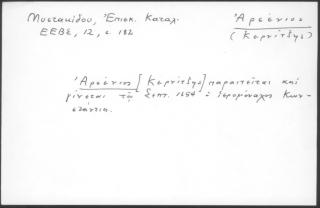 Μυστακίδου, Ἐπισκ. Καταλ.
ΕΕΒΣ, 12, σ. 182
Ἀρσένιος
(Κερνίτσης)
Ἀρσένιος [Κερνίτσης] παραιτεῖται καὶ
γίνεται τῷ Σεπτ. 1654 : ἱερομόναχος Κων-
στάντιος.